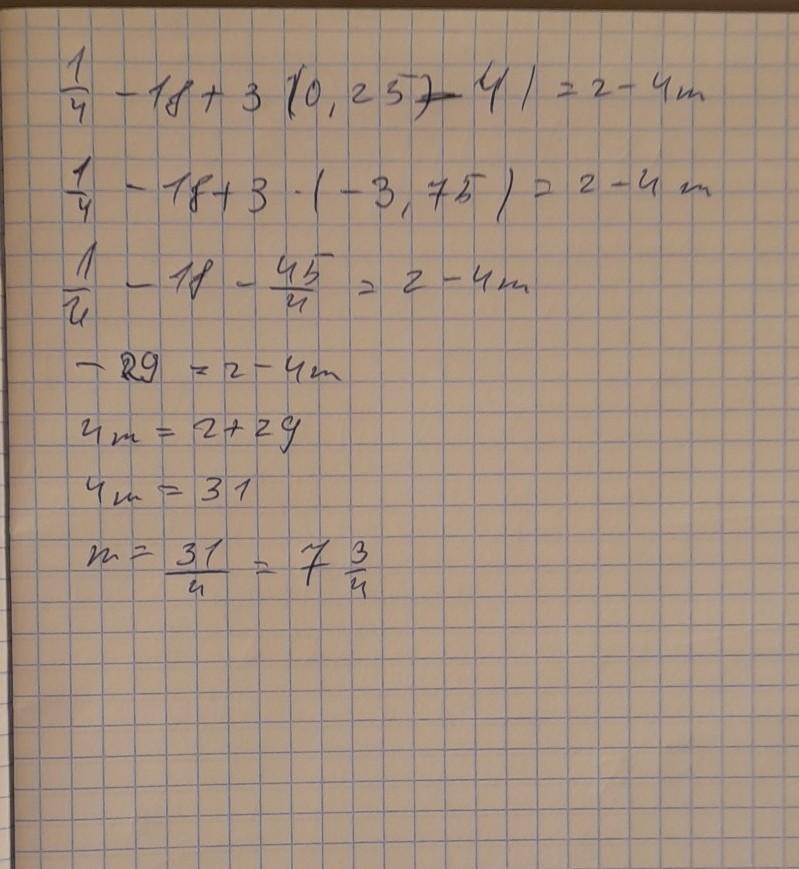 1/4 - 18 + 3 (0,25 - 4) = 2 - 4m
1/4 - 18 + 3 · (-3,75) = 2 - 4m
1/4 - 18 - 45/4 = 2 - 4m
- 29 = 2 - 4m
4m = 2 + 29
4m = 31
m = 31/4 = 7 3/4